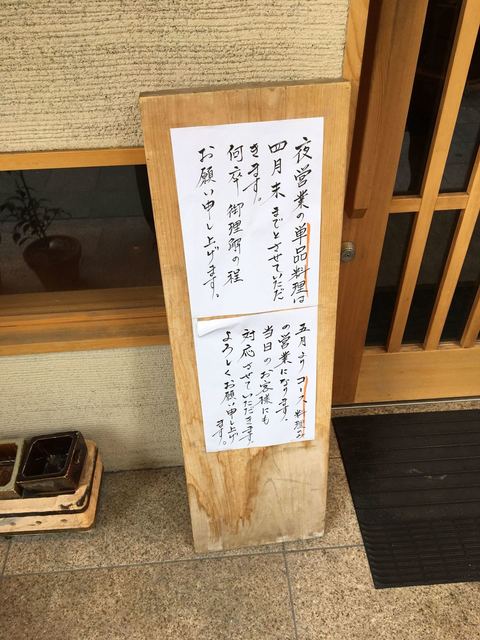 夜営業の単品料理は
四月末までとさせていただ
きます。
何卒御理解の程
お願い申し上げます。
五月よりコース料理のみ
の営業になります。
当日のお客様にも
対応させていただきます。
よろしくお願い申し上げ
ます。